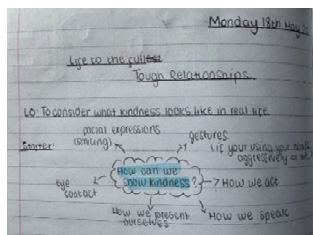 Monday 18th May
Life to the fullest
Tough Relationships
LO: To consider what kindness looks like in real life
Starter:
facial expressions
(smiling)
gestures
(if your using your hands
aggressively or not)
How can we
show kindness?
eye
contact
How we act
How we present
ourselves
How we speak